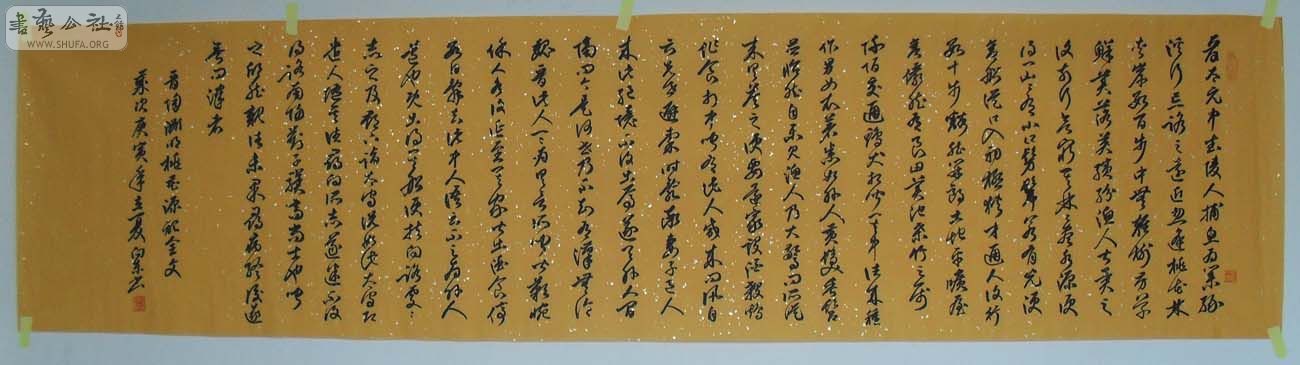 書藝公社
WWW.SHUFA.ORG
晉太元中武陵人捕魚為業緣
溪行忘路之遠近忽逢桃花林
夾岸數百步中無雜樹芳草
鮮美落英繽紛漁人甚異之
復前行欲窮其林林盡水源便
得一山山有小口髣髴若有光便
舍船從口入初極狹才通人復行
數十步豁然開朗土地平曠屋
舍儼然有良田美池桑竹之屬
阡陌交通雞犬相聞其中往來種
作男女衣著悉如外人黃髮垂髫
並怡然自樂見漁人乃大驚問所從
來具答之便要還家設酒殺雞
作食村中聞有此人咸來問訊自
云先世避秦時亂率妻子邑人
來此絕境不復出焉遂與外人間
隔問今是何世乃不知有漢無論
魏晉此人一一為具言所聞皆歎惋
餘人各復延至其家皆出酒食停
數日辭去此中人語云不足為外人
道也既出得其船便扶向路處處
誌之及郡下詣太守說如此太守即
遣人隨其往尋向所誌遂迷不復
得路南陽劉子驥高尚士也聞
之欣然規往未果尋病終後遂
無問津者
晉陶淵明桃花源記全文
歲次庚寅年立夏